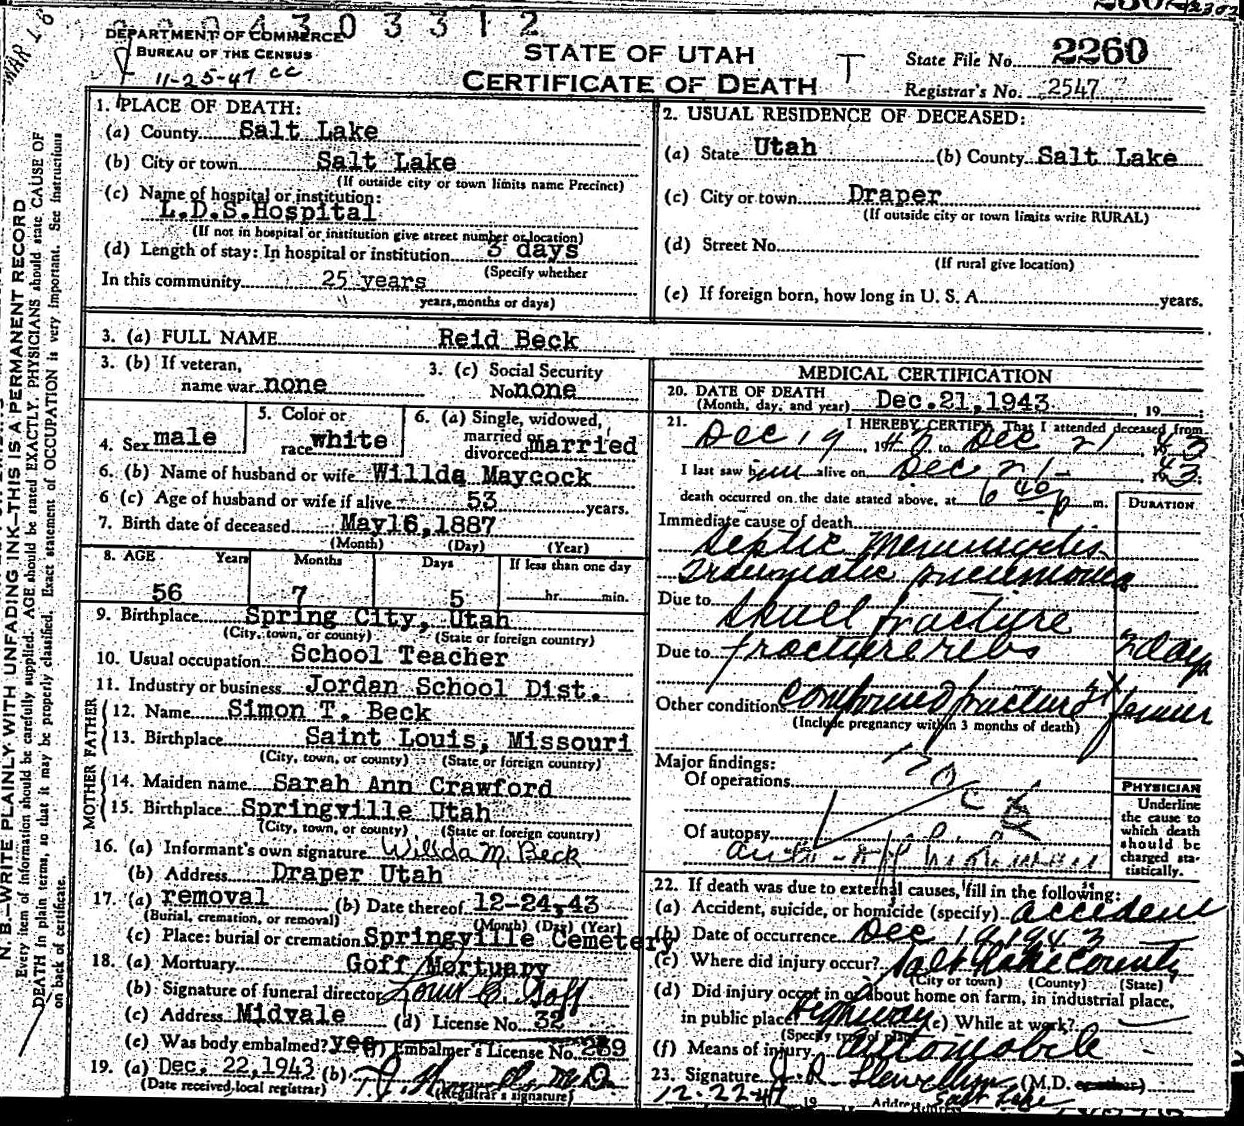 2260
DEPARTMENT OF COMMERCE
BUREAU OF THE CENSUS
11-25-47 cc
STATE OF UTAH
CERTIFICATE OF DEATH
State File No. 2260
Registrar's No. 2547
1. PLACE OF DEATH:
(a) County Salt Lake
(b) City or town Salt Lake
(If outside city or town limits name Precinct)
(c) Name of hospital or institution:
L.D.S. Hospital
(If not in hospital or institution give street number or location)
(d) Length of stay: In hospital or institution 3 days
(Specify whether
In this community 25 years
years, months or days)
2. USUAL RESIDENCE OF DECEASED:
(a) State Utah (b) County Salt Lake
(c) City or town Draper
(If outside city or town limits write RURAL)
(d) Street No.
(If rural give location)
(e) If foreign born, how long in U. S. A. years.
3. (a) FULL NAME Reid Beck
3. (b) If veteran, name war none
3. (c) Social Security No none
4. Sex male
5. Color or race white
6. (a) Single, widowed, married or divorced married
6. (b) Name of husband or wife Willda Maycock
6 (c) Age of husband or wife if alive 53 years.
7. Birth date of deceased May16,1887
(Month) (Day) (Year)
8. AGE Years Months Days If less than one day
56 7 5 hr. min.
9. Birthplace Spring City, Utah
(City, town, or county) (State or foreign country)
10. Usual occupation School Teacher
11. Industry or business Jordan School Dist.
FATHER
12. Name Simon T. Beck
13. Birthplace Saint Louis, Missouri
(City, town, or county) (State or foreign country)
MOTHER
14. Maiden name Sarah Ann Crawford
15. Birthplace Springville Utah
(City, town, or county) (State or foreign country)
16. (a) Informant's own signature Willda M. Beck
(b) Address Draper Utah
17. (a) removal (b) Date thereof 12-24,43
(Burial, cremation, or removal) (Month) (Day) (Year)
(c) Place: burial or cremation Springville Cemetery
18. (a) Mortuary Goff Mortuary
(b) Signature of funeral director Goff
(c) Address Midvale (d) License No. 32
(e) Was body embalmed? yes (f) Embalmer's License No. 289
19. (a) Dec. 22,1943 (b)
(Date received local registrar) (Registrar's signature)
MEDICAL CERTIFICATION
20. DATE OF DEATH
(Month, day, and year) Dec.21,1943 , 19
21. I HEREBY CERTIFY, That I attended deceased from
Dec 19, 1943 to Dec 21 1943
I last saw him alive on Dec 21 1943
death occurred on the date stated above, at 6 40 p m.
DURATION
Immediate cause of death
Septic Meningitis
Traumatic pneumonia
Due to skull fracture
Due to fracture ribs 2 days
Other conditions compound fracture femur
(Include pregnancy within 3 months of death)
Major findings:
Of operations
Of autopsy
PHYSICIAN
Underline the cause to which death should be charged statistically.
22. If death was due to external causes, fill in the following:
(a) Accident, suicide, or homicide (specify) accident
(b) Date of occurrence Dec 19 1943
(c) Where did injury occur? Salt Lake County
(City or town) (County) (State)
(d) Did injury occur in or about home on farm, in industrial place,
in public place Highway (e) While at work?
(Specify type of place)
(f) Means of injury automobile
23. Signature J. R. Llewellyn (M.D. or other)
N. B.—WRITE PLAINLY WITH UNFADING INK—THIS IS A PERMANENT RECORD
Every item of information should be carefully supplied. AGE should be stated EXACTLY. PHYSICIANS should state CAUSE OF
DEATH in plain terms, so that it may be properly classified. Exact statement of OCCUPATION is very important. See instructions
on back of certificate.